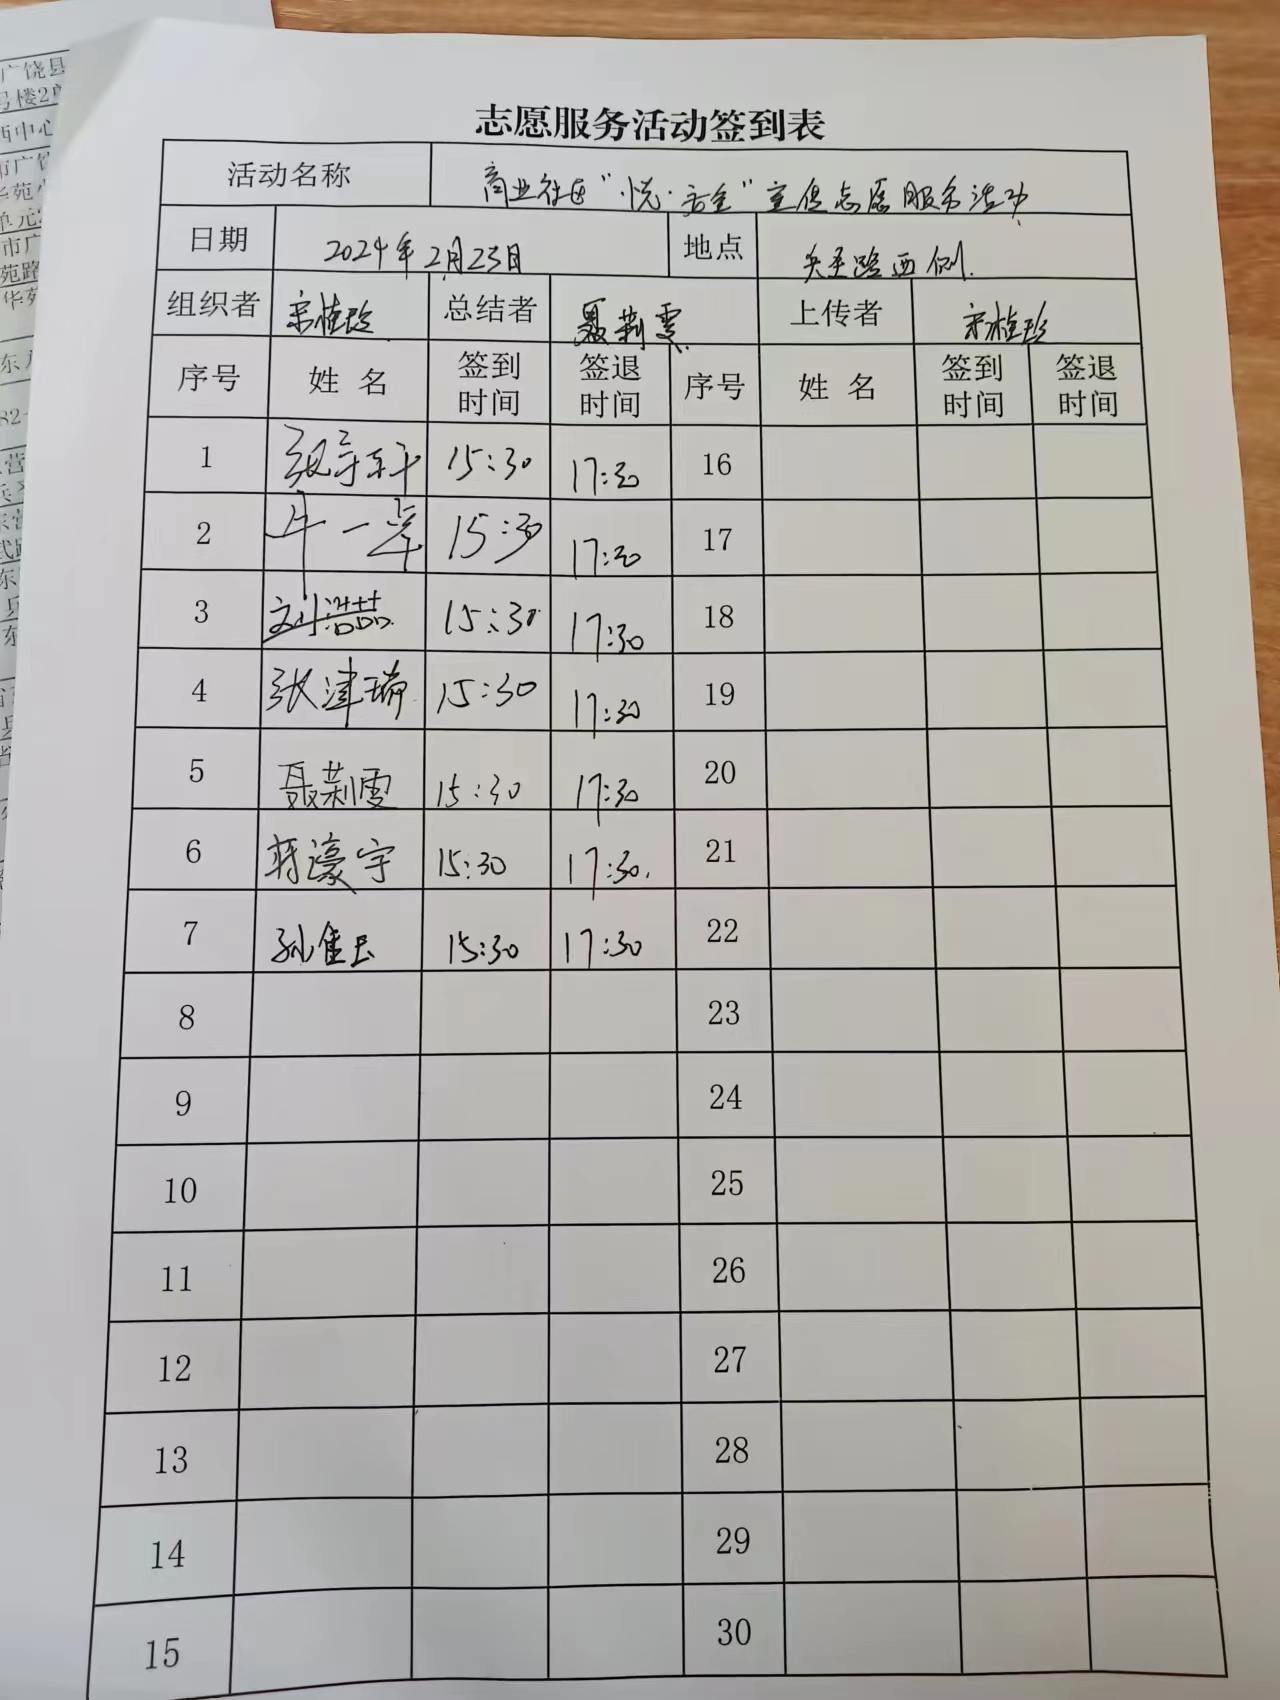 志愿服务活动签到表
活动名称 商业社区“悦·安全”宣传志愿服务活动
日期 2024年2月23日 地点 路西侧
组织者 宋桂珍 总结者 聂莉雯 上传者 宋桂珍
序号 姓名 签到时间 签退时间 序号 姓名 签到时间 签退时间
1 15:30 17:30 16
2 牛一卓 15:30 17:30 17
3 刘浩喆 15:30 17:30 18
4 张津瑞 15:30 17:30 19
5 聂莉雯 15:30 17:30 20
6 蒋濠宇 15:30 17:30 21
7 孙佳玉 15:30 17:30 22
8 23
9 24
10 25
11 26
12 27
13 28
14 29
15 30